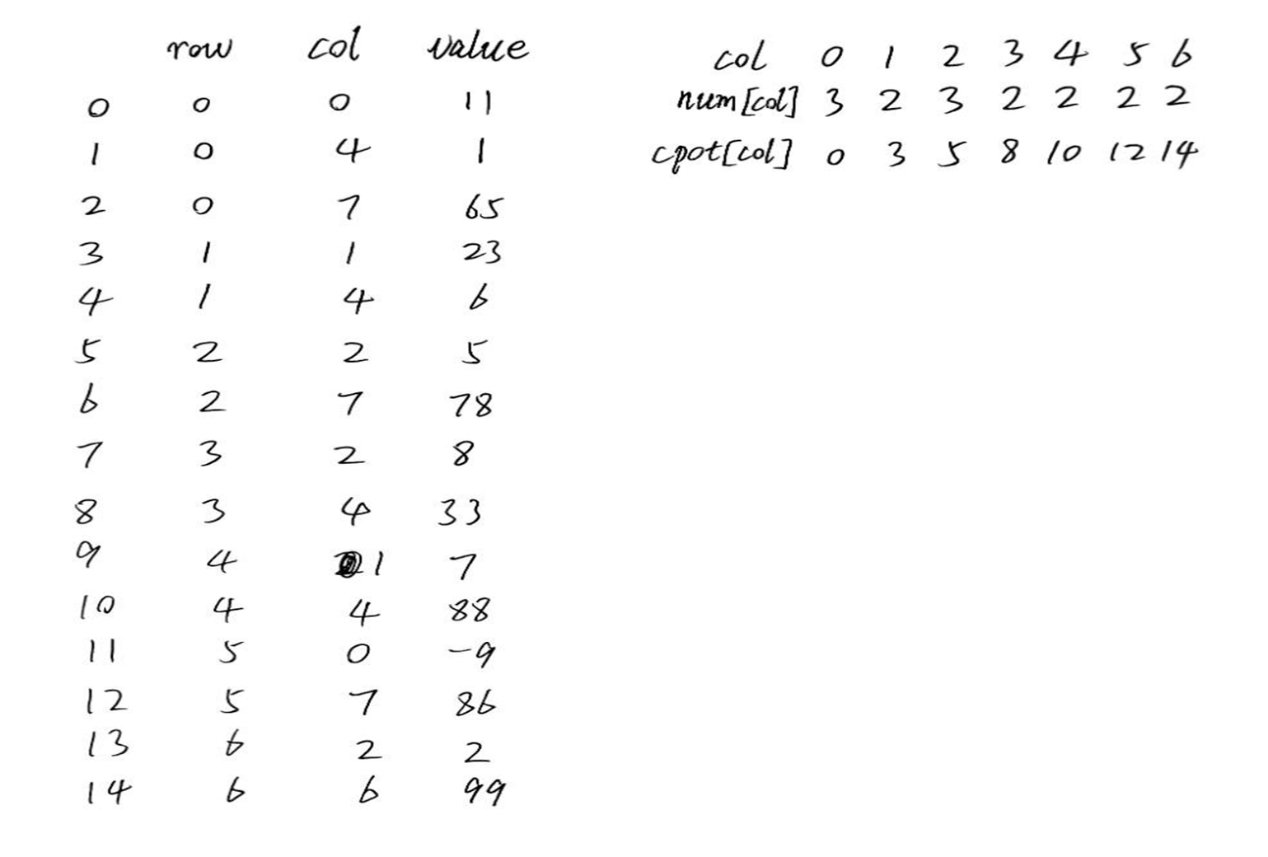 row col value
0 0 0 11
1 0 4 1
2 0 7 65
3 1 1 23
4 1 4 6
5 2 2 5
6 2 7 78
7 3 2 8
8 3 4 33
9 4 1 7
10 4 4 88
11 5 0 -9
12 5 7 86
13 6 2 2
14 6 6 99
col 0 1 2 3 4 5 6
num[col] 3 2 3 2 2 2 2
cpot[col] 0 3 5 8 10 12 14